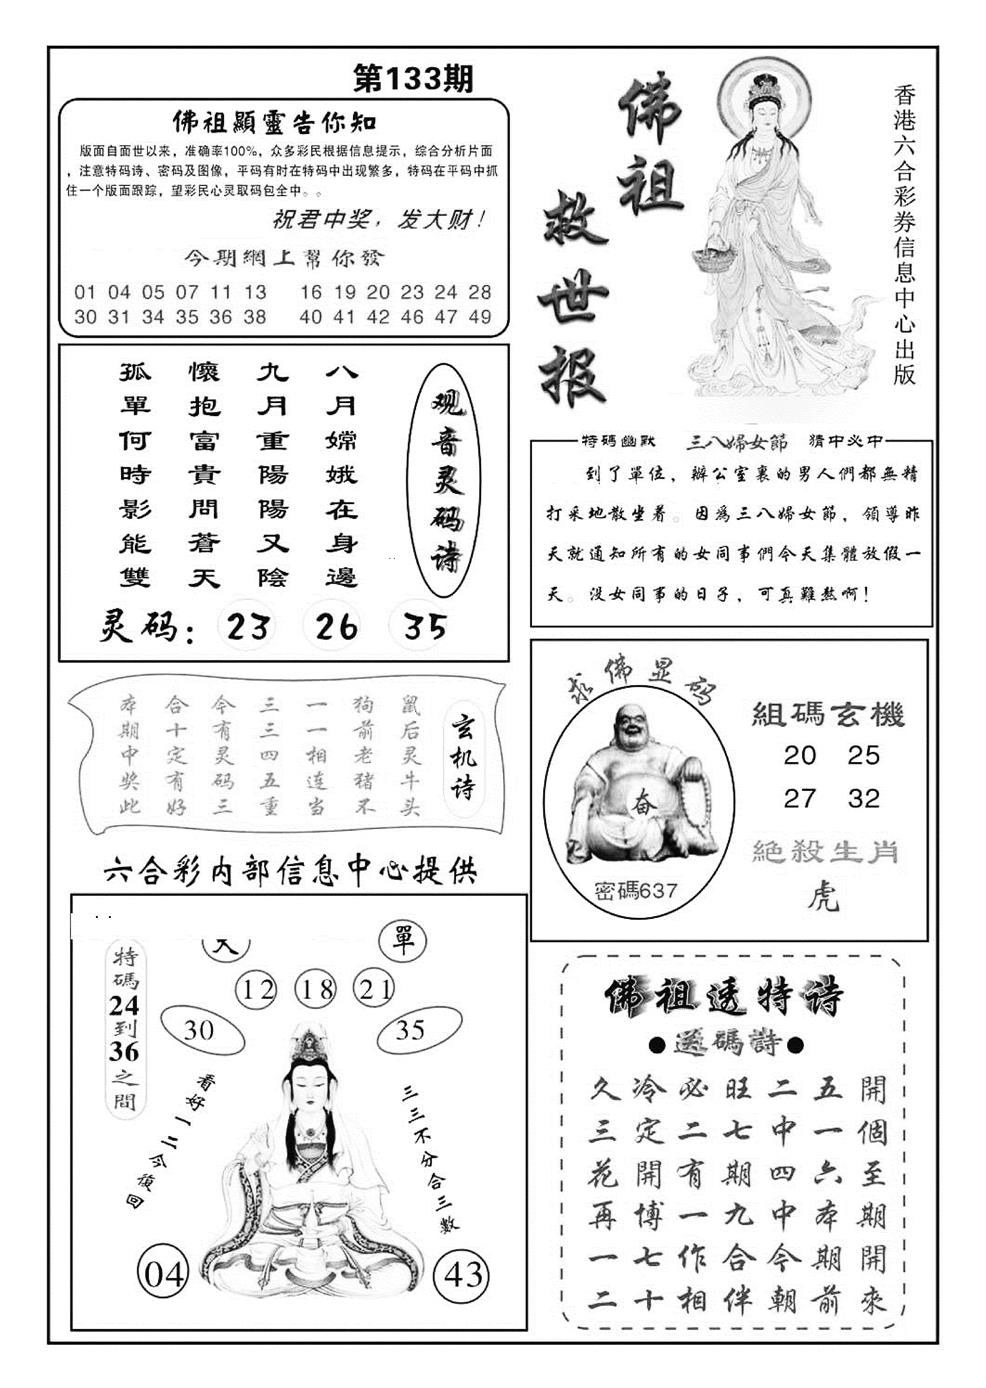 第133期
佛祖顯靈告你知
版面自面世以来，准确率100%，众多彩民根据信息提示，综合分析片面
，注意特码诗、密码及图像，平码有时在特码中出现繁多，特码在平码中抓
住一个版面跟踪，望彩民心灵取码包全中。。
祝君中奖，发大财！
今期網上幫你發
01 04 05 07 11 13 16 19 20 23 24 28
30 31 34 35 36 38 40 41 42 46 47 49
佛祖
救世报
香港六合彩券信息中心出版
观音灵码诗
八月嫦娥在身邊
九月重陽陽又陰
懷抱富貴問蒼天
孤單何時影能雙
灵码：23 26 35
特碼幽默 三八婦女節 猜中必中
到了單位，辦公室裏的男人們都無精
打采地散坐着。因爲三八婦女節，領導昨
天就通知所有的女同事們今天集體放假一
天。没女同事的日子，可真難熬啊！
玄机诗
鼠后灵牛头
狗前老猪不
一一相连当
三三四五重
今有灵码三
合十定有好
本期中奖此
求佛显码
奋
密碼637
組碼玄機
20 25
27 32
絕殺生肖
虎
六合彩内部信息中心提供
特碼24到36之間
大
單
12 18 21
30
35
看好一二今復回
三三不分合三數
04
43
佛祖透特诗
●送碼詩●
久冷必旺二五開
三定二七中一個
花開有期四六至
再博一九中本期
一七作合今期開
二十相伴朝前來